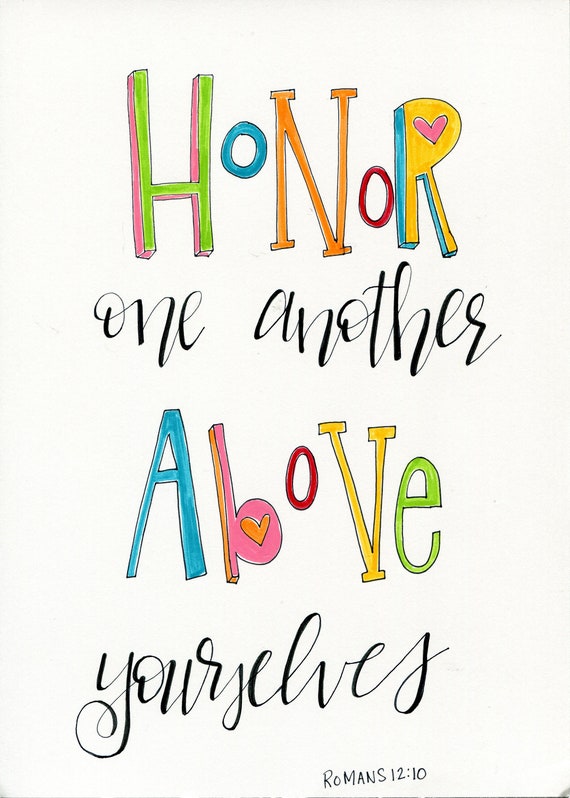 HoNoR
one another
AboVe
yourselves
ROMANS 12:10